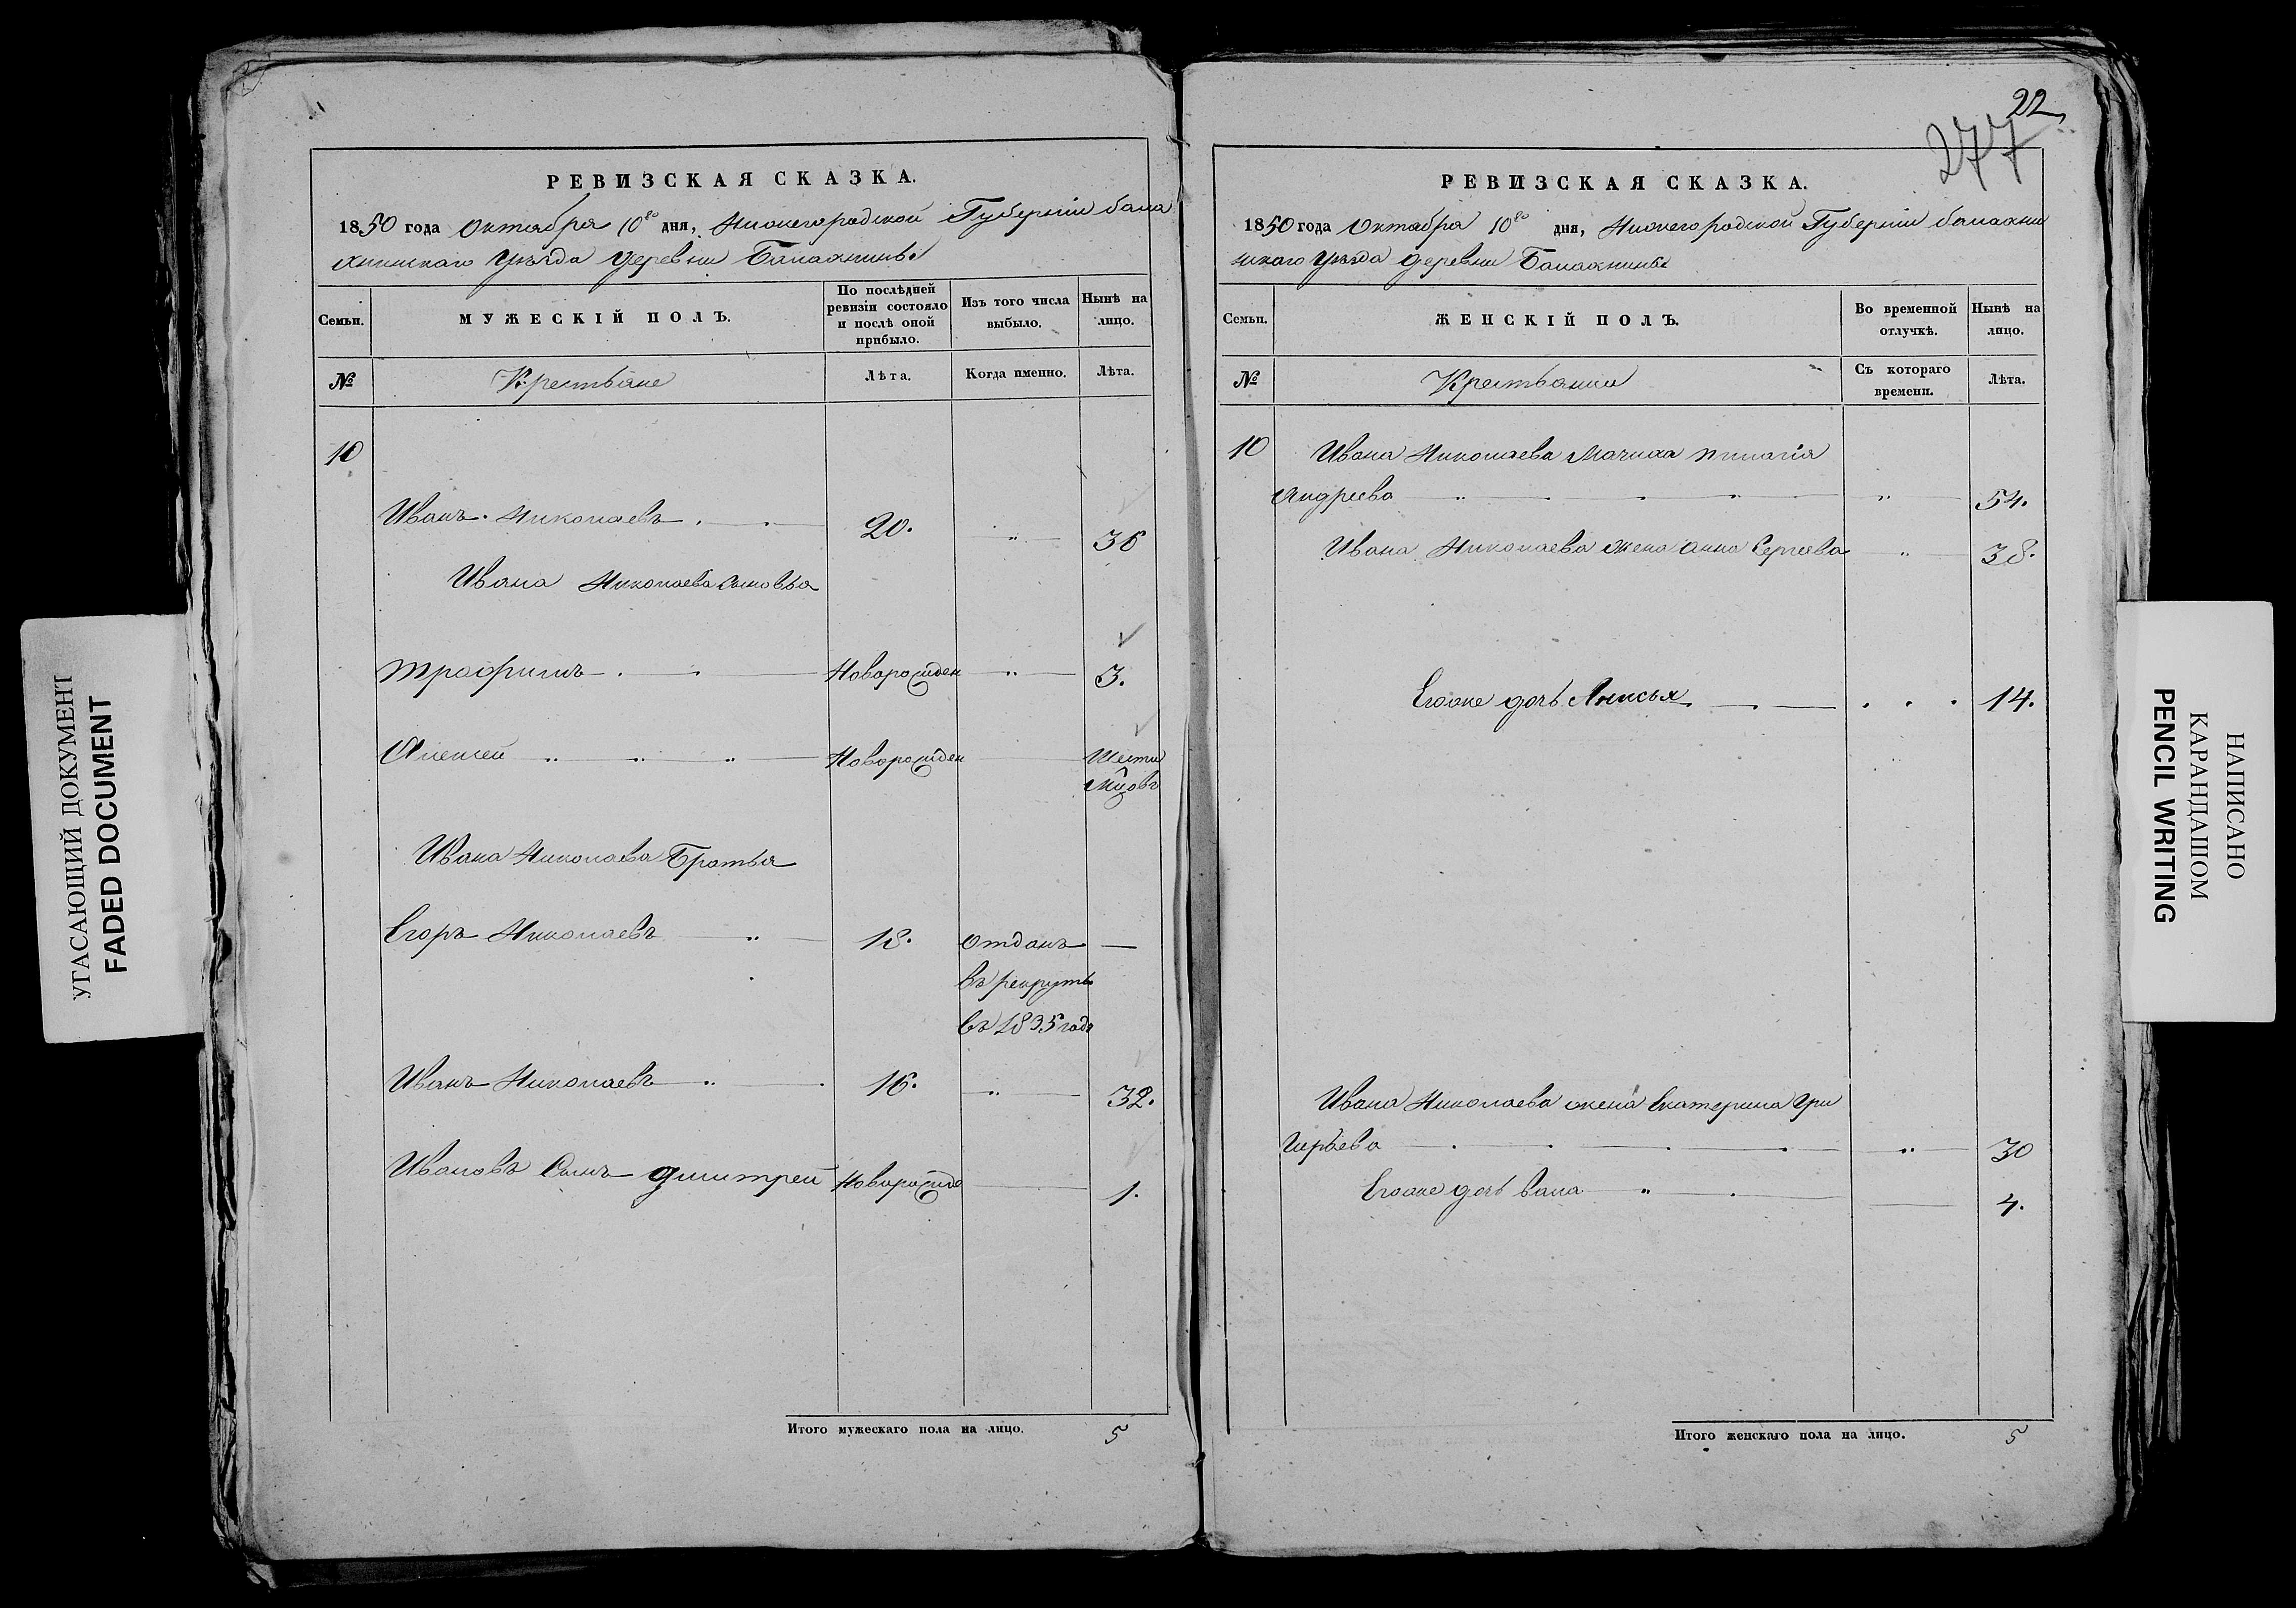 22
277
РЕВИЗСКАЯ СКАЗКА.
1850 года Октября 10го дня, Нижегородской Губерніи бала
хнинскаго Уѣзда деревни Балахнины
Семьи.
МУЖЕСКІЙ ПОЛЪ.
По послѣдней ревизіи состояло и послѣ оной прибыло.
Изъ того числа выбыло.
Нынѣ на лицо.
№
Крестьяне
Лѣта.
Когда именно.
Лѣта.
10
Иванъ Николаевъ 20. 36
Ивана Николаева сыновья
Трофимъ Новорожден 3.
Алексей Новорожден Шести
мцовъ
Ивана Николаева Братья
Егоръ Николаевъ 18. отданъ —
въ рекруты
въ 1835 годе
Иванъ Николаевъ 16. 32.
Ивановъ Сынъ Дмитрей Новорожде 1.
Итого мужескаго пола на лицо. 5
РЕВИЗСКАЯ СКАЗКА.
1850 года Октября 10го дня, Нижегородской Губерніи балахни
нскаго Уѣзда деревни Балахнины
Семьи.
ЖЕНСКІЙ ПОЛЪ.
Во временной отлучкѣ.
Нынѣ на лицо.
№
Крестьянки
Съ котораго времени.
Лѣта.
10 Ивана Николаева Мачиха
Андреева 54.
Ивана Николаева жена Анна Сергеева 38.
Егоже дочь Анисья 14.
Ивана Николаева жена Екатерина Гри
горьева 30
Егоже дочь 4.
Итого женскаго пола на лицо. 5
УГАСАЮЩИЙ ДОКУМЕНТ
FADED DOCUMENT
НАПИСАНО
КАРАНДАШОМ
PENCIL WRITING